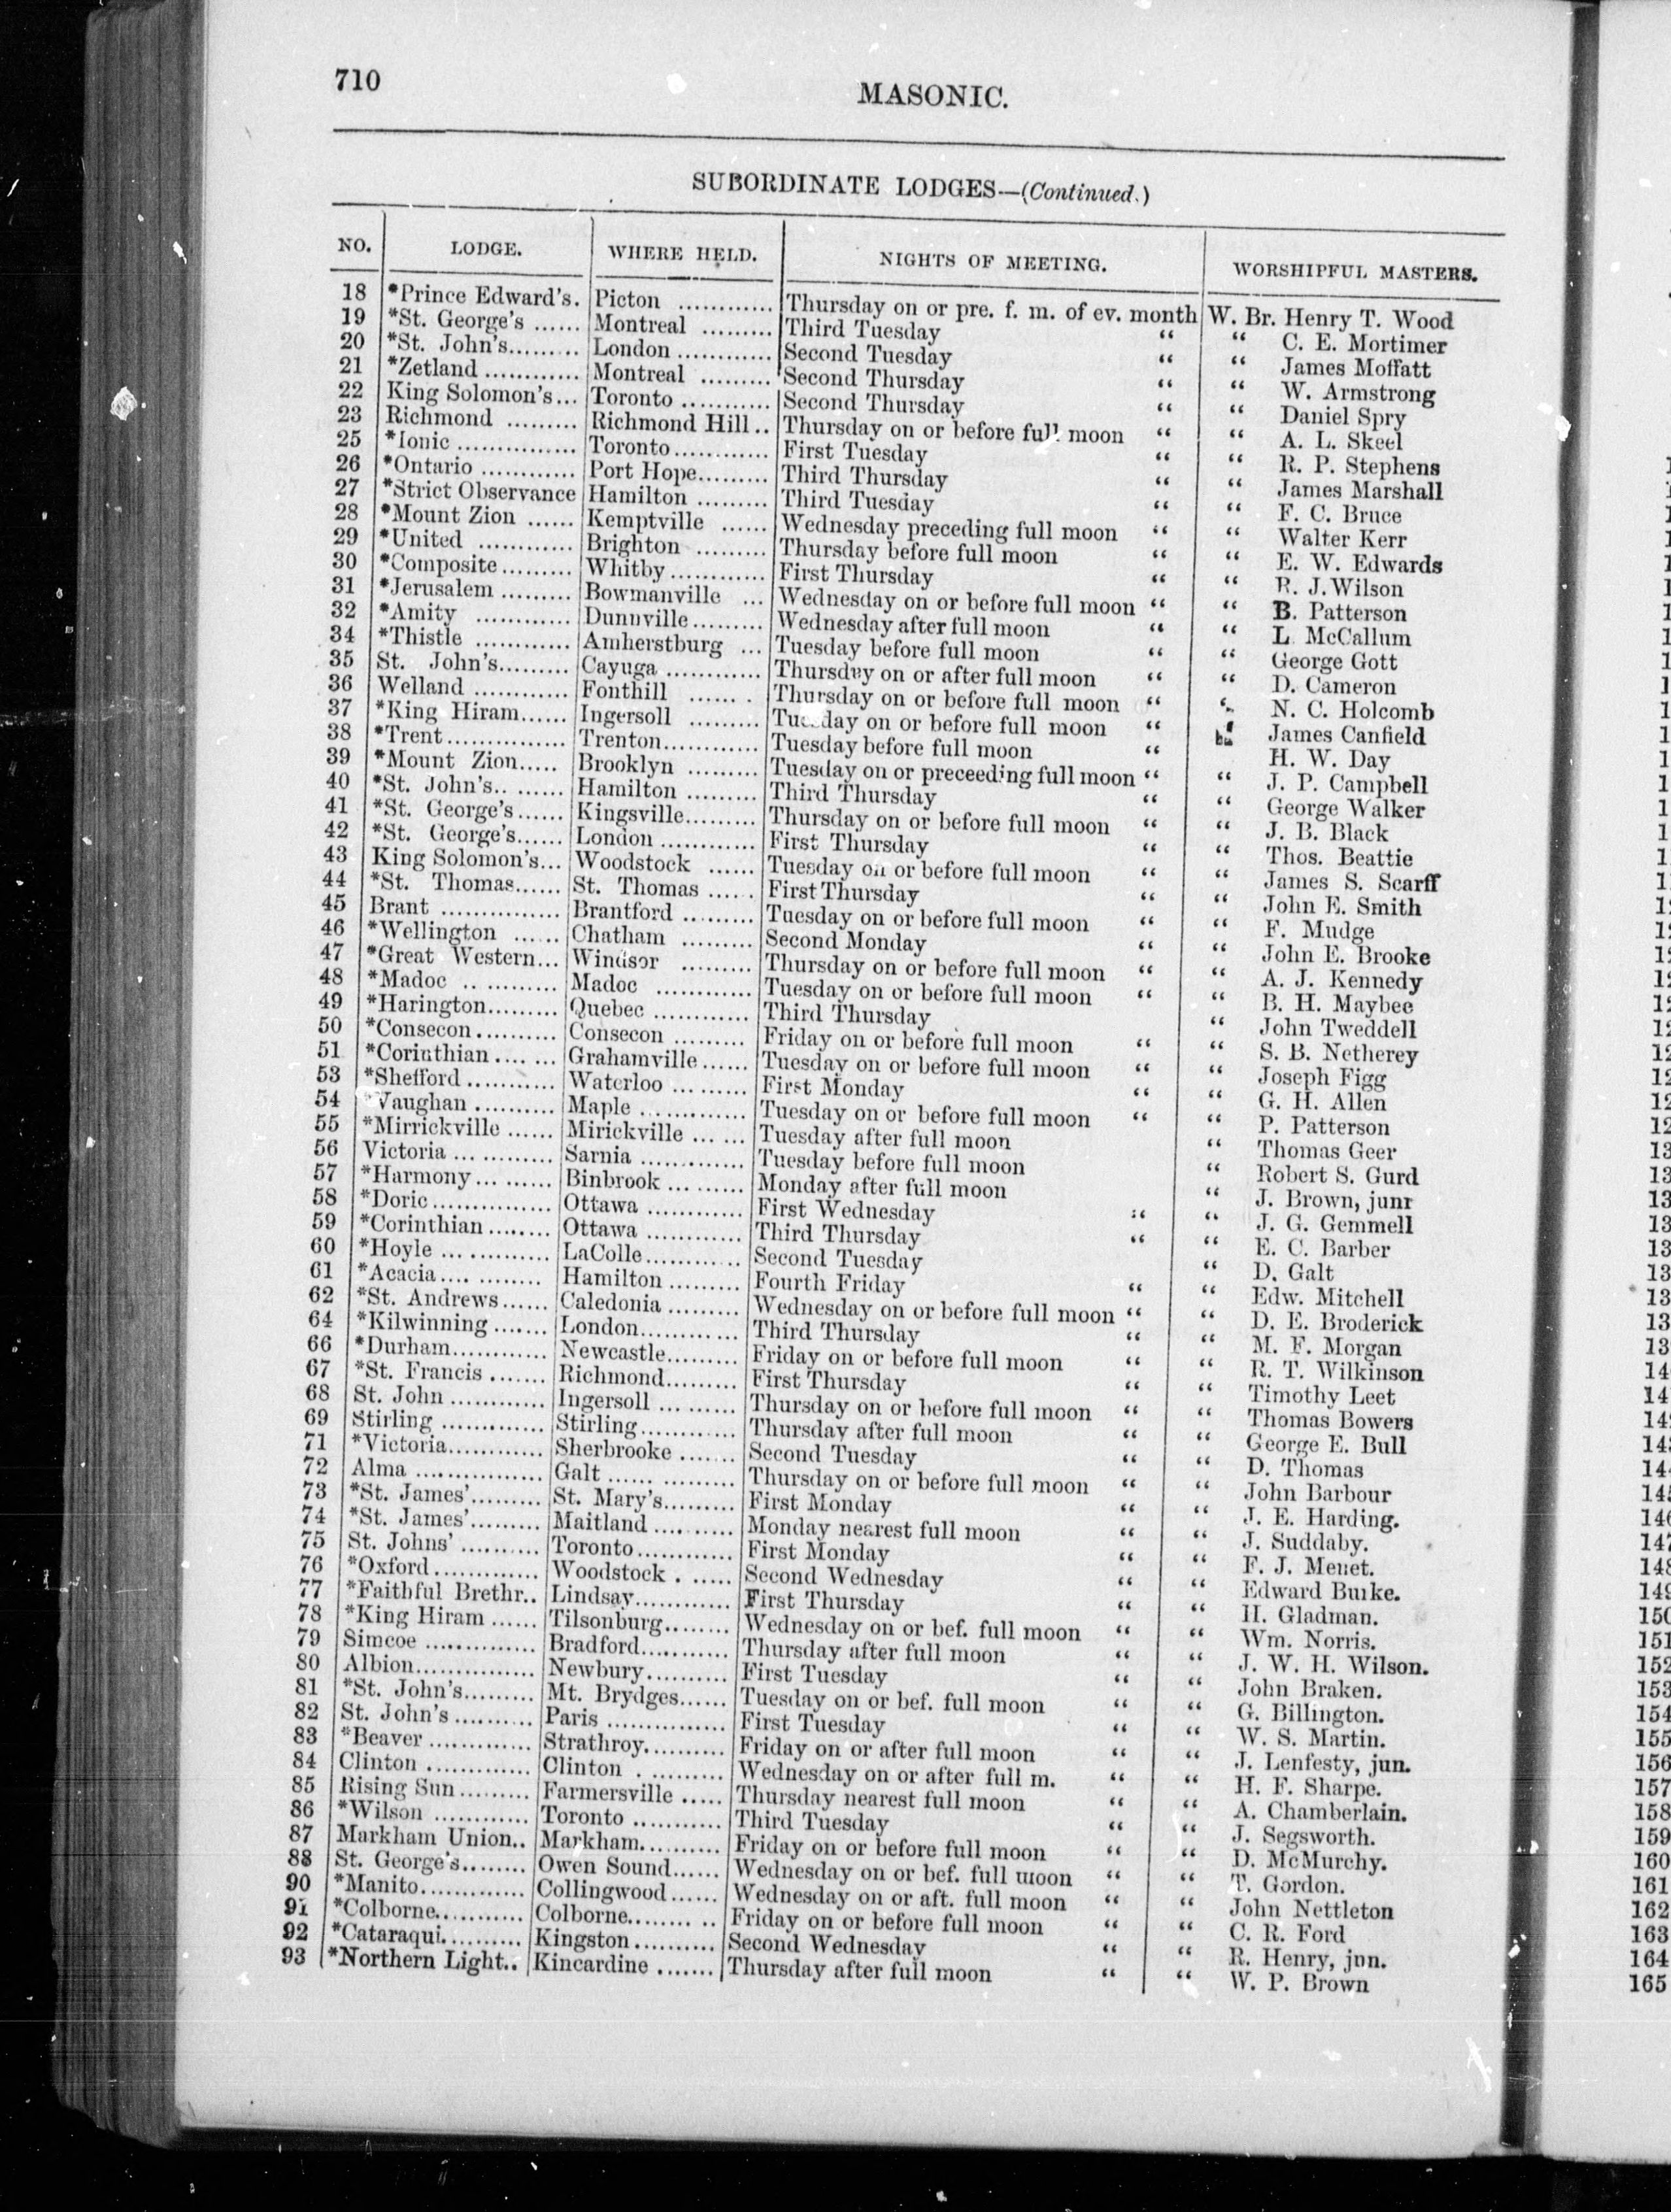 710
MASONIC.
SUBORDINATE LODGES—(Continued.)
NO. LODGE. WHERE HELD. NIGHTS OF MEETING. WORSHIPFUL MASTERS.
18 *Prince Edward's. Picton ............ Thursday on or pre. f. m. of ev. month W. Br. Henry T. Wood
19 *St. George's ...... Montreal ......... Third Tuesday “ “ C. E. Mortimer
20 *St. John's......... London ............ Second Tuesday “ “ James Moffatt
21 *Zetland ............ Montreal ......... Second Thursday “ “ W. Armstrong
22 King Solomon's... Toronto ........... Second Thursday “ “ Daniel Spry
23 Richmond ......... Richmond Hill.. Thursday on or before full moon “ “ A. L. Skeel
25 *Ionic ............... Toronto............ First Tuesday “ “ R. P. Stephens
26 *Ontario ............ Port Hope......... Third Thursday “ “ James Marshall
27 *Strict Observance Hamilton ......... Third Tuesday “ “ F. C. Bruce
28 *Mount Zion ...... Kemptville ...... Wednesday preceding full moon “ “ Walter Kerr
29 *United ............ Brighton ......... Thursday before full moon “ “ E. W. Edwards
30 *Composite......... Whitby............ First Thursday “ “ R. J. Wilson
31 *Jerusalem ......... Bowmanville ... Wednesday on or before full moon “ “ B. Patterson
32 *Amity ............ Dunnville......... Wednesday after full moon “ “ L McCallum
34 *Thistle ............ Amherstburg ... Tuesday before full moon “ “ George Gott
35 St. John's......... Cayuga ............ Thursday on or after full moon “ “ D. Cameron
36 Welland ............ Fonthill ...... . Thursday on or before full moon “ “ N. C. Holcomb
37 *King Hiram...... Ingersoll ......... Tuesday on or before full moon “ James Canfield
38 *Trent............... Trenton............ Tuesday before full moon “ H. W. Day
39 *Mount Zion..... Brooklyn ......... Tuesday on or preceeding full moon “ “ J. P. Campbell
40 *St. John's.. ...... Hamilton ......... Third Thursday “ “ George Walker
41 *St. George's...... Kingsville......... Thursday on or before full moon “ “ J. B. Black
42 *St. George's...... London ............ First Thursday “ “ Thos. Beattie
43 King Solomon's... Woodstock ...... Tuesday on or before full moon “ “ James S. Scarff
44 *St. Thomas...... St. Thomas ..... . First Thursday “ “ John E. Smith
45 Brant ............... Brantford ......... Tuesday on or before full moon “ “ F. Mudge
46 *Wellington ...... Chatham ......... Second Monday “ “ John E. Brooke
47 *Great Western... Windsor ......... Thursday on or before full moon “ “ A. J. Kennedy
48 *Madoc .. .......... Madoc ............ Tuesday on or before full moon “ “ B. H. Maybee
49 *Harington......... Quebec ............ Third Thursday “ John Tweddell
50 *Consecon.......... Consecon ......... Friday on or before full moon “ “ S. B. Netherey
51 *Corinthian.... ... Grahamville...... Tuesday on or before full moon “ “ Joseph Figg
53 *Shefford ........... Waterloo ... ...... First Monday “ “ G. H. Allen
54 *Vaughan .......... Maple ... .......... Tuesday on or before full moon “ “ P. Patterson
55 *Mirrickville ...... Mirickville ... ... Tuesday after full moon “ Thomas Geer
56 Victoria ... .......... Sarnia ............. Tuesday before full moon “ Robert S. Gurd
57 *Harmony... ...... Binbrook ... ...... Monday after full moon “ J. Brown, junr
58 *Doric............... Ottawa ............ First Wednesday “ “ J. G. Gemmell
59 *Corinthian ........ Ottawa ............ Third Thursday “ “ E. C. Barber
60 *Hoyle ... .......... LaColle............ Second Tuesday “ D. Galt
61 *Acacia.... ......... Hamilton ......... Fourth Friday “ “ Edw. Mitchell
62 *St. Andrews...... Caledonia ......... Wednesday on or before full moon “ “ D. E. Broderick
64 *Kilwinning ....... London............ Third Thursday “ “ M. F. Morgan
66 *Durham............ Newcastle......... Friday on or before full moon “ “ R. T. Wilkinson
67 *St. Francis ....... Richmond......... First Thursday “ “ Timothy Leet
68 St. John ............ Ingersoll ... ...... Thursday on or before full moon “ “ Thomas Bowers
69 Stirling ............. Stirling............ Thursday after full moon “ “ George E. Bull
71 *Victoria............ Sherbrooke ....... Second Tuesday “ “ D. Thomas
72 Alma ................ Galt ...... ......... Thursday on or before full moon “ “ John Barbour
73 *St. James'......... St. Mary's......... First Monday “ “ J. E. Harding.
74 *St. James'......... Maitland .......... Monday nearest full moon “ “ J. Suddaby.
75 St. Johns' .......... Toronto............ First Monday “ “ F. J. Menet.
76 *Oxford............. Woodstock . ..... Second Wednesday “ “ Edward Burke.
77 *Faithful Brethr.. Lindsay............ First Thursday “ “ H. Gladman.
78 *King Hiram ...... Tilsonburg........ Wednesday on or bef. full moon “ “ Wm. Norris.
79 Simcoe .............. Bradford........... Thursday after full moon “ “ J. W. H. Wilson.
80 Albion............... Newbury.......... First Tuesday “ “ John Braken.
81 *St. John's......... Mt. Brydges...... Tuesday on or bef. full moon “ “ G. Billington.
82 St. John's .......... Paris ............... First Tuesday “ “ W. S. Martin.
83 *Beaver ............. Strathroy.......... Friday on or after full moon “ “ J. Lenfesty, jun.
84 Clinton ............. Clinton . ......... Wednesday on or after full m. “ “ H. F. Sharpe.
85 Rising Sun ......... Farmersville ..... Thursday nearest full moon “ “ A. Chamberlain.
86 *Wilson ............ Toronto ........... Third Tuesday “ “ J. Segsworth.
87 Markham Union.. Markham.......... Friday on or before full moon “ “ D. McMurchy.
88 St. George's........ Owen Sound...... Wednesday on or bef. full moon “ “ T. Gordon.
90 *Manito............. Collingwood...... Wednesday on or aft. full moon “ “ John Nettleton
91 *Colborne........... Colborne........ .. Friday on or before full moon “ “ C. R. Ford
92 *Cataraqui.......... Kingston.......... Second Wednesday “ “ R. Henry, jun.
93 *Northern Light.. Kincardine ....... Thursday after full moon “ “ W. P. Brown
151
152
153
154
155
156
157
158
159
160
161
162
163
164
165